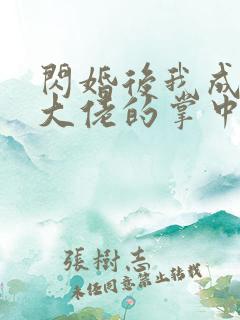 閃婚後我成
大佬的掌中
張樹志
未經同意禁止轉載